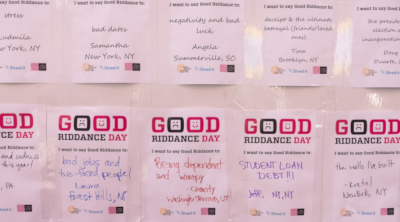 I want to say Good Riddance to:
stress
Ludmila
New York, NY
I want to say Good Riddance to:
bad dates
Samantha
New York, NY
I want to say Good Riddance to:
negativity and bad
luck
Angela
Summerville, SC
I want to say Good Riddance to:
deceipt & the ultimate
betrayal (friends/lovers)
Tina
Brooklyn, NY
I want to say Good
the preside
election
inaugurati
Doug
Duarte,
GOOD
RIDDANCE DAY
I want to say Good Riddance to:
this year!
, PA
GOOD
RIDDANCE DAY
I want to say Good Riddance to:
bad jobs and
two-faced people!
Laura
Forest Hills, NY
GOOD
RIDDANCE DAY
I want to say Good Riddance to:
Being dependent
and wimpy
- Charity
GOOD
RIDDANCE DAY
I want to say Good Riddance to:
STUDENT LOAN
DEBT!!!
Jeff, NY, NY
GOOD
RIDDANCE DAY
I want to say Good Riddance to:
the walls I've built